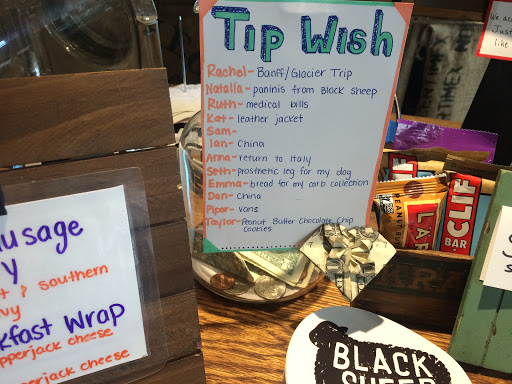 Tip Wish
Rachel- Banff/Glacier Trip
Natalia- paninis from Black sheep
Ruth- medical bills
Kat- leather jacket
Sam-
Ian- China
Anna- return to Italy
Seth- prosthetic leg for my dog
Emma- bread for my carb collection
Dan- China
Piper- vans
Taylor- Peanut Butter Chocolate Chip
cookies
We
Just
like
ausage
y
t & Southern
vy
kfast Wrap
pperjack cheese
pperjack cheese
PEANUT BU
LA
CLIF
BAR
BLACK
SHEEP